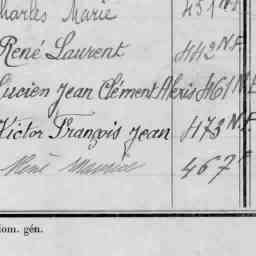 Charles Marie 451 N.F.
René Laurent 442 N.F.
Lucien Jean Clément Alexis 461 N.F.
Victor François Jean 473 N.F.
René Maurice 467
iom. gén.